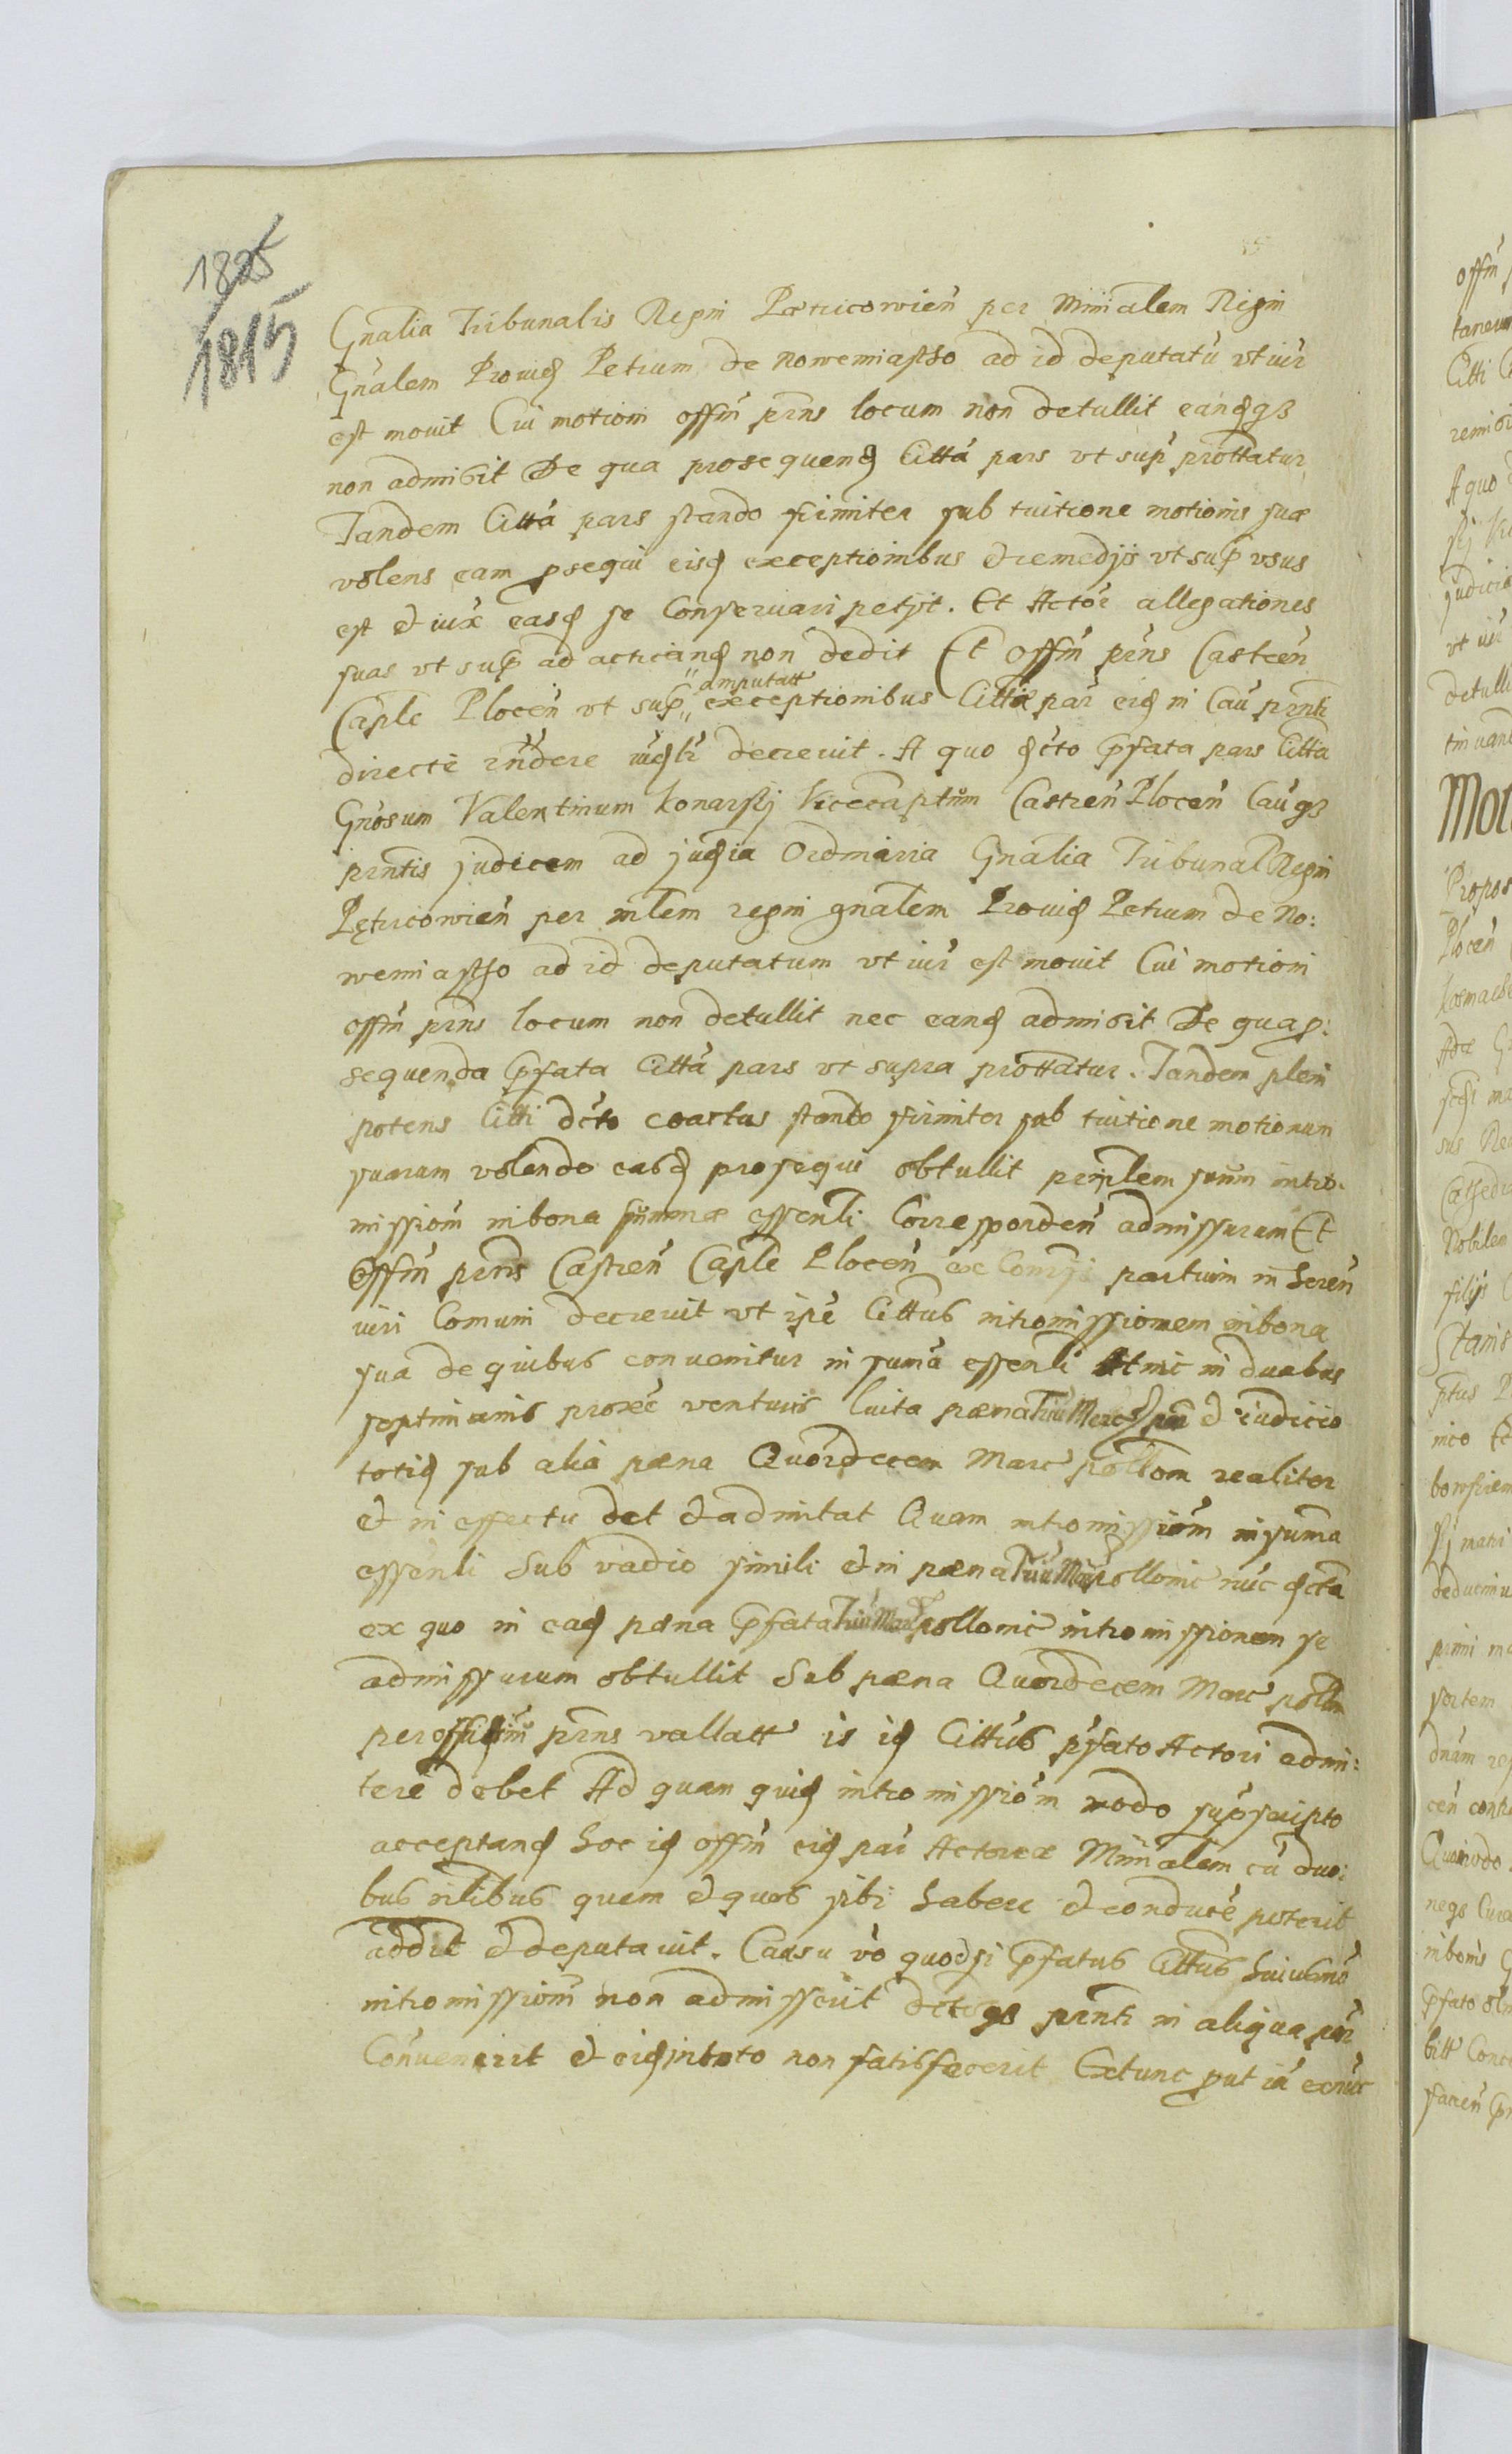 1885
1815
Gnalia Tribunalis Regni Petricowien̄ per Minialem Regni
Gnālem Provid Petrum de Nowemiasto ad id deputatū vt iur̄
est movit Cui motioni offm̄ prn̄s locum non detullit eandqз
non admisit De qua prosequend Citta pars vt sup̄ prottatur
Tandem Citta pars stando firmiter sub tuitione motionis suæ
volens eam psequi eisd exceptionibus et remedijs vt sup̄ vsus
est et iux̄ easd se Conservari petijt. Et Actōr allegationes
suas vt sup̄ ad acticand non dedit Et Offm̄ prn̄s Castren̄
Caple Plocen̄ vt sup̄ " amputatt exceptionibus Cittæ par̄ eid in Cau prn̄ti
directe rn̄dere decrevit. A quo dcto p̄fata pars Citta
Gnosum Valentinum Konarski Vicecaptūm Castren̄ Plocen̄ Cauqз
prn̄tis judicem ad judia Ordinaria Gnalia Tribunal Regni
Petricowien̄ per mlem regni gnalem Provid Petrum de No:
wemiasto ad id deputatum vt iur̄ est movit Cui motioni
offm̄ prn̄s locum non detullit nec eand admisit De qua p:
sequenda p̄fata Citta pars vt supra prottatur. Tandem pleni
potens Citti dcto coactus stando firmiter sub tuitione motionum
suarum volendo easd prosequi obtullit prin̄lem suum intro:
missiom̄ in bona summæ essen̄li Corresponden̄ admissurum Et
Offm̄ prn̄s Castren̄ Caple Plocen̄ partium in heren̄
iuri Comuni decrevit vt ipe Cittus intromissionem in bona
sua de quibus convenitur in suma essen̄li hinc in duabus
septimanis proxe venturis luita pæna Triu Marc et iudicio
totid sub alia pæna Quordecem Marc pollon̄ realiter
et in effectu det et admittat Quam intromissiom̄ in suma
essen̄li Sub vadio simili et in pæna Triu Mar pollonic nūc dcta
ex quo in ead pæna p̄fata Triu Marc pollonic intromissionem se
admissurum obtullit Sub pæna Quordecem Marc pollon̄
per offm̄ prn̄s vallatt is id Cittus p̄fato Actori admi:
tere debet Ad quam quid intromissiom̄ modo sup̄scripto
acceptand hoc id offm̄ eid par̄ Actoreæ Minialem cū duo:
bus nlibus quem et quos sibi habere et conducē poterit
addit et deputavit. Casu vō quodsi p̄fatus Cittus huiusmō
intromissiom̄ non admisserit dctoqз prn̄ti in aliqua par̄
Conuenerit et eid in toto non satisfecerit Extunc put iā exnūc